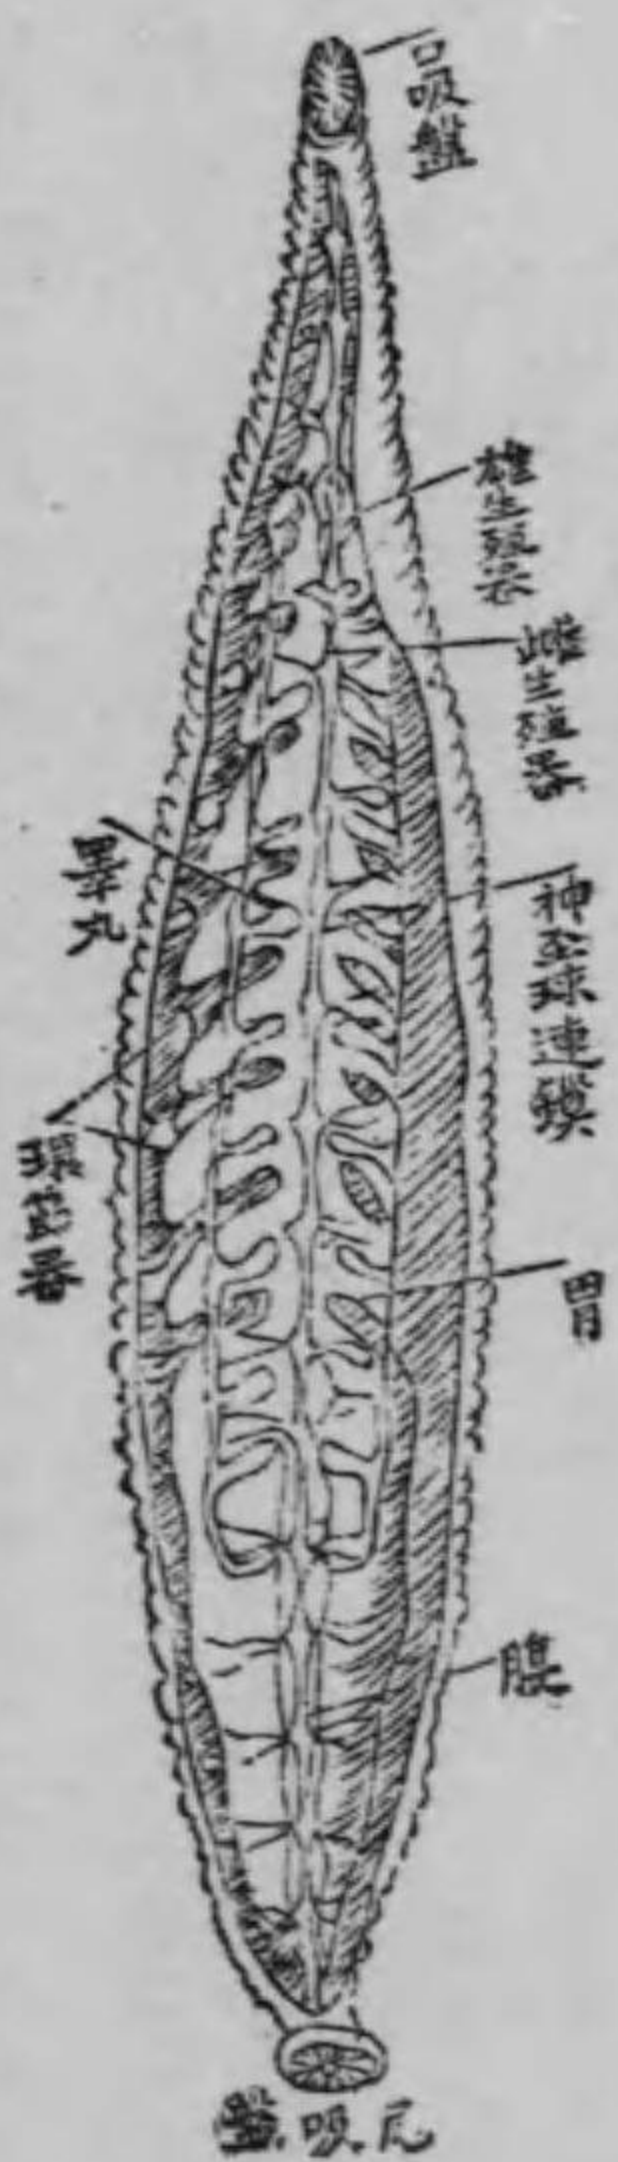 口吸盤
雄生殖器
雌生殖器
睾丸
神经球連鎖
環節器
胃
腸
盤吸尾